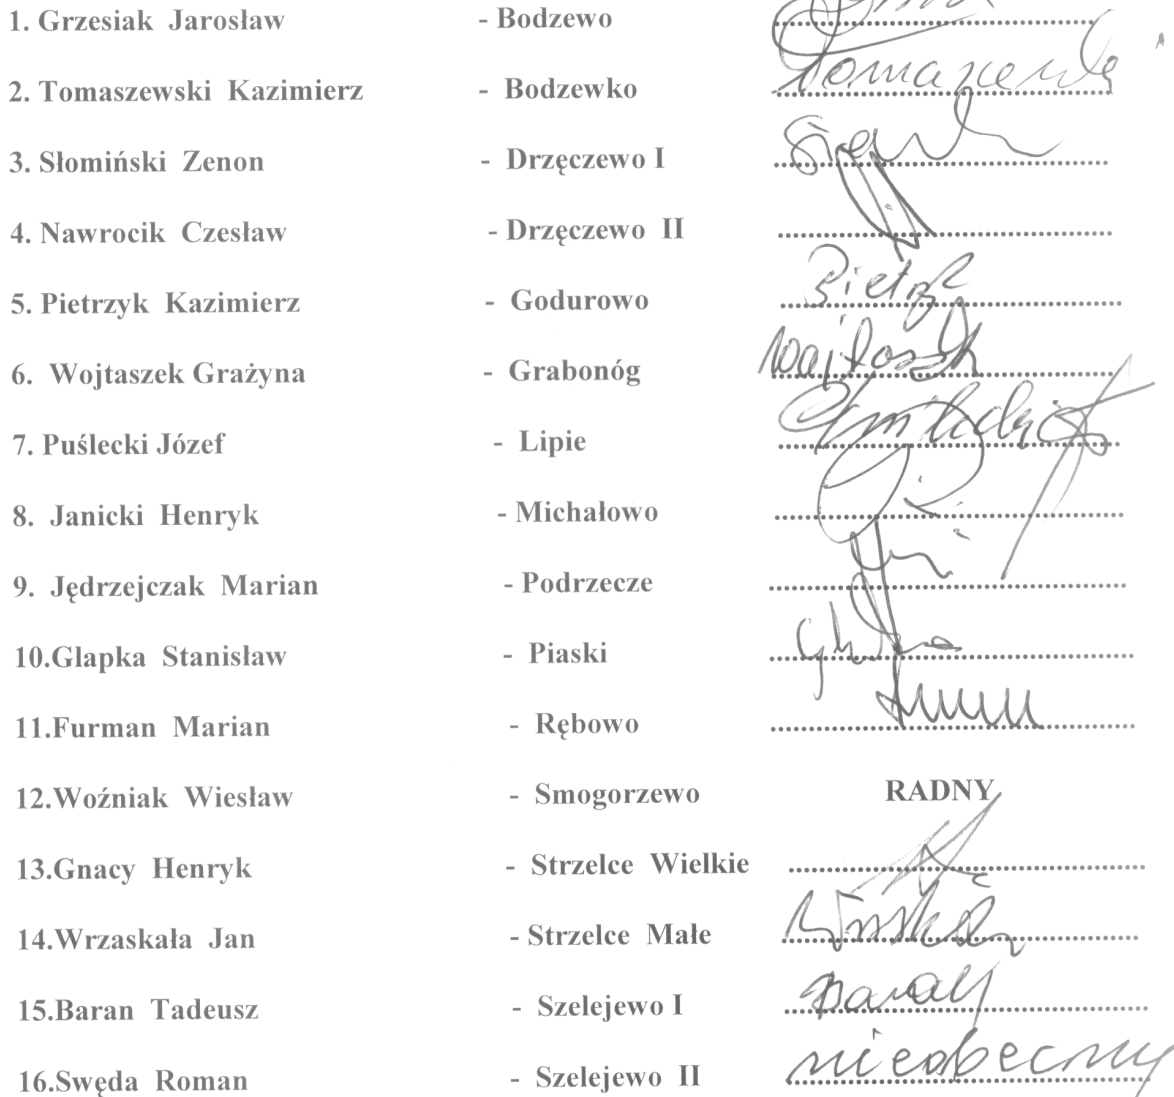 1. Grzesiak Jarosław - Bodzewo
2. Tomaszewski Kazimierz - Bodzewko
3. Słomiński Zenon - Drzęczewo I
4. Nawrocik Czesław - Drzęczewo II
5. Pietrzyk Kazimierz - Godurowo
6. Wojtaszek Grażyna - Grabonóg
7. Puślecki Józef - Lipie
8. Janicki Henryk - Michałowo
9. Jędrzejczak Marian - Podrzecze
10.Glapka Stanisław - Piaski
11.Furman Marian - Rębowo
12.Woźniak Wiesław - Smogorzewo RADNY
13.Gnacy Henryk - Strzelce Wielkie
14.Wrzaskała Jan - Strzelce Małe
15.Baran Tadeusz - Szelejewo I
16.Swęda Roman - Szelejewo II nieobecny